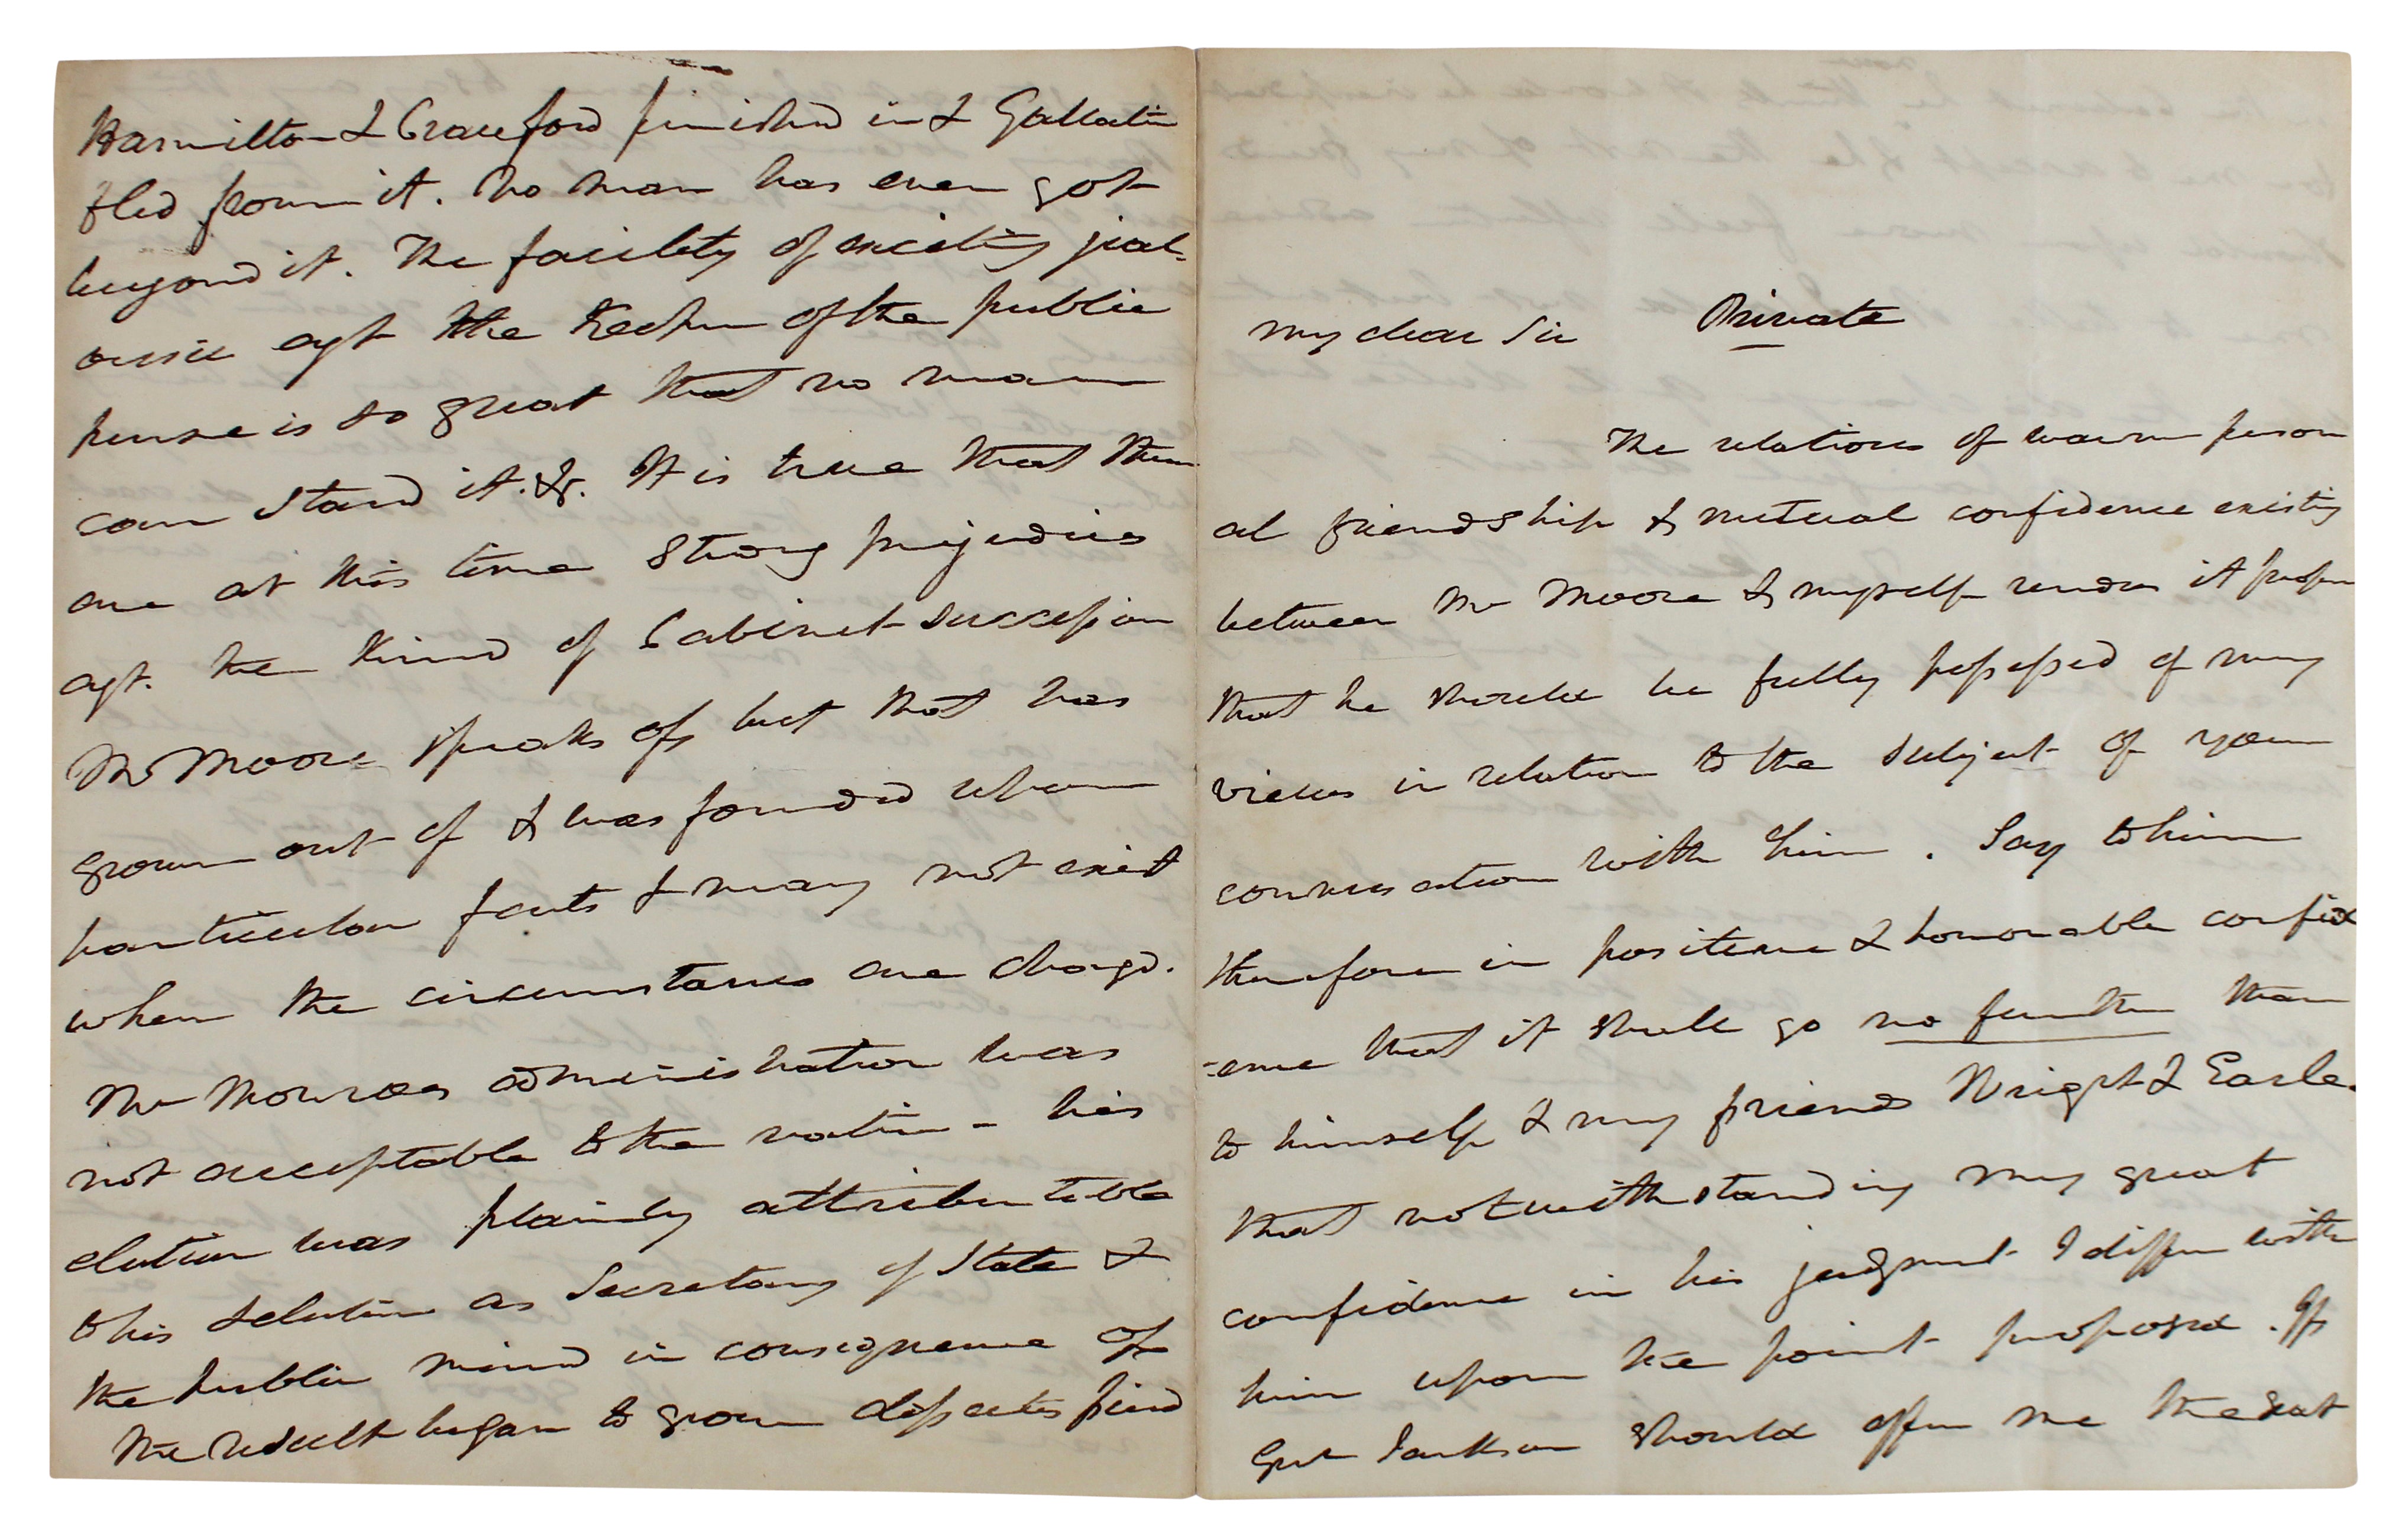 Hamilton & Crawford finished in & Gallatin
fled from it. No man has ever got
beyond it. The facility of exciting jeal-
ousie agt the Keeper of the public
purse is so great that no man
can stand it. &. It is true that there
are at this time strong prejudices
agt. the kind of Cabinet succession
Mr Moore speaks of, but that has
grown out of & was founded upon
particular facts & may not exist
when the circumstances are changd.
Mr Monroes administration was
not acceptable to the nation - his
election was plainly attributable
to his selection as Secretary of State &
the public mind in consequence of
the result began to grow dissatisfied
Private
My dear Sir
The relations of warm person
al friendship & mutual confidence existing
between Mr Moore & myself renders it proper
that he should be fully possessed of my
views in relation to the subject of your
conversation with him. Say to him
therefore in positive & honorable confid
-ence that it shall go no further than
to himself & my friends Wright & Earle
that notwithstanding my great
confidence in his judgment I differ with
him upon the point proposed. If
Genl Jackson should offer me the seat